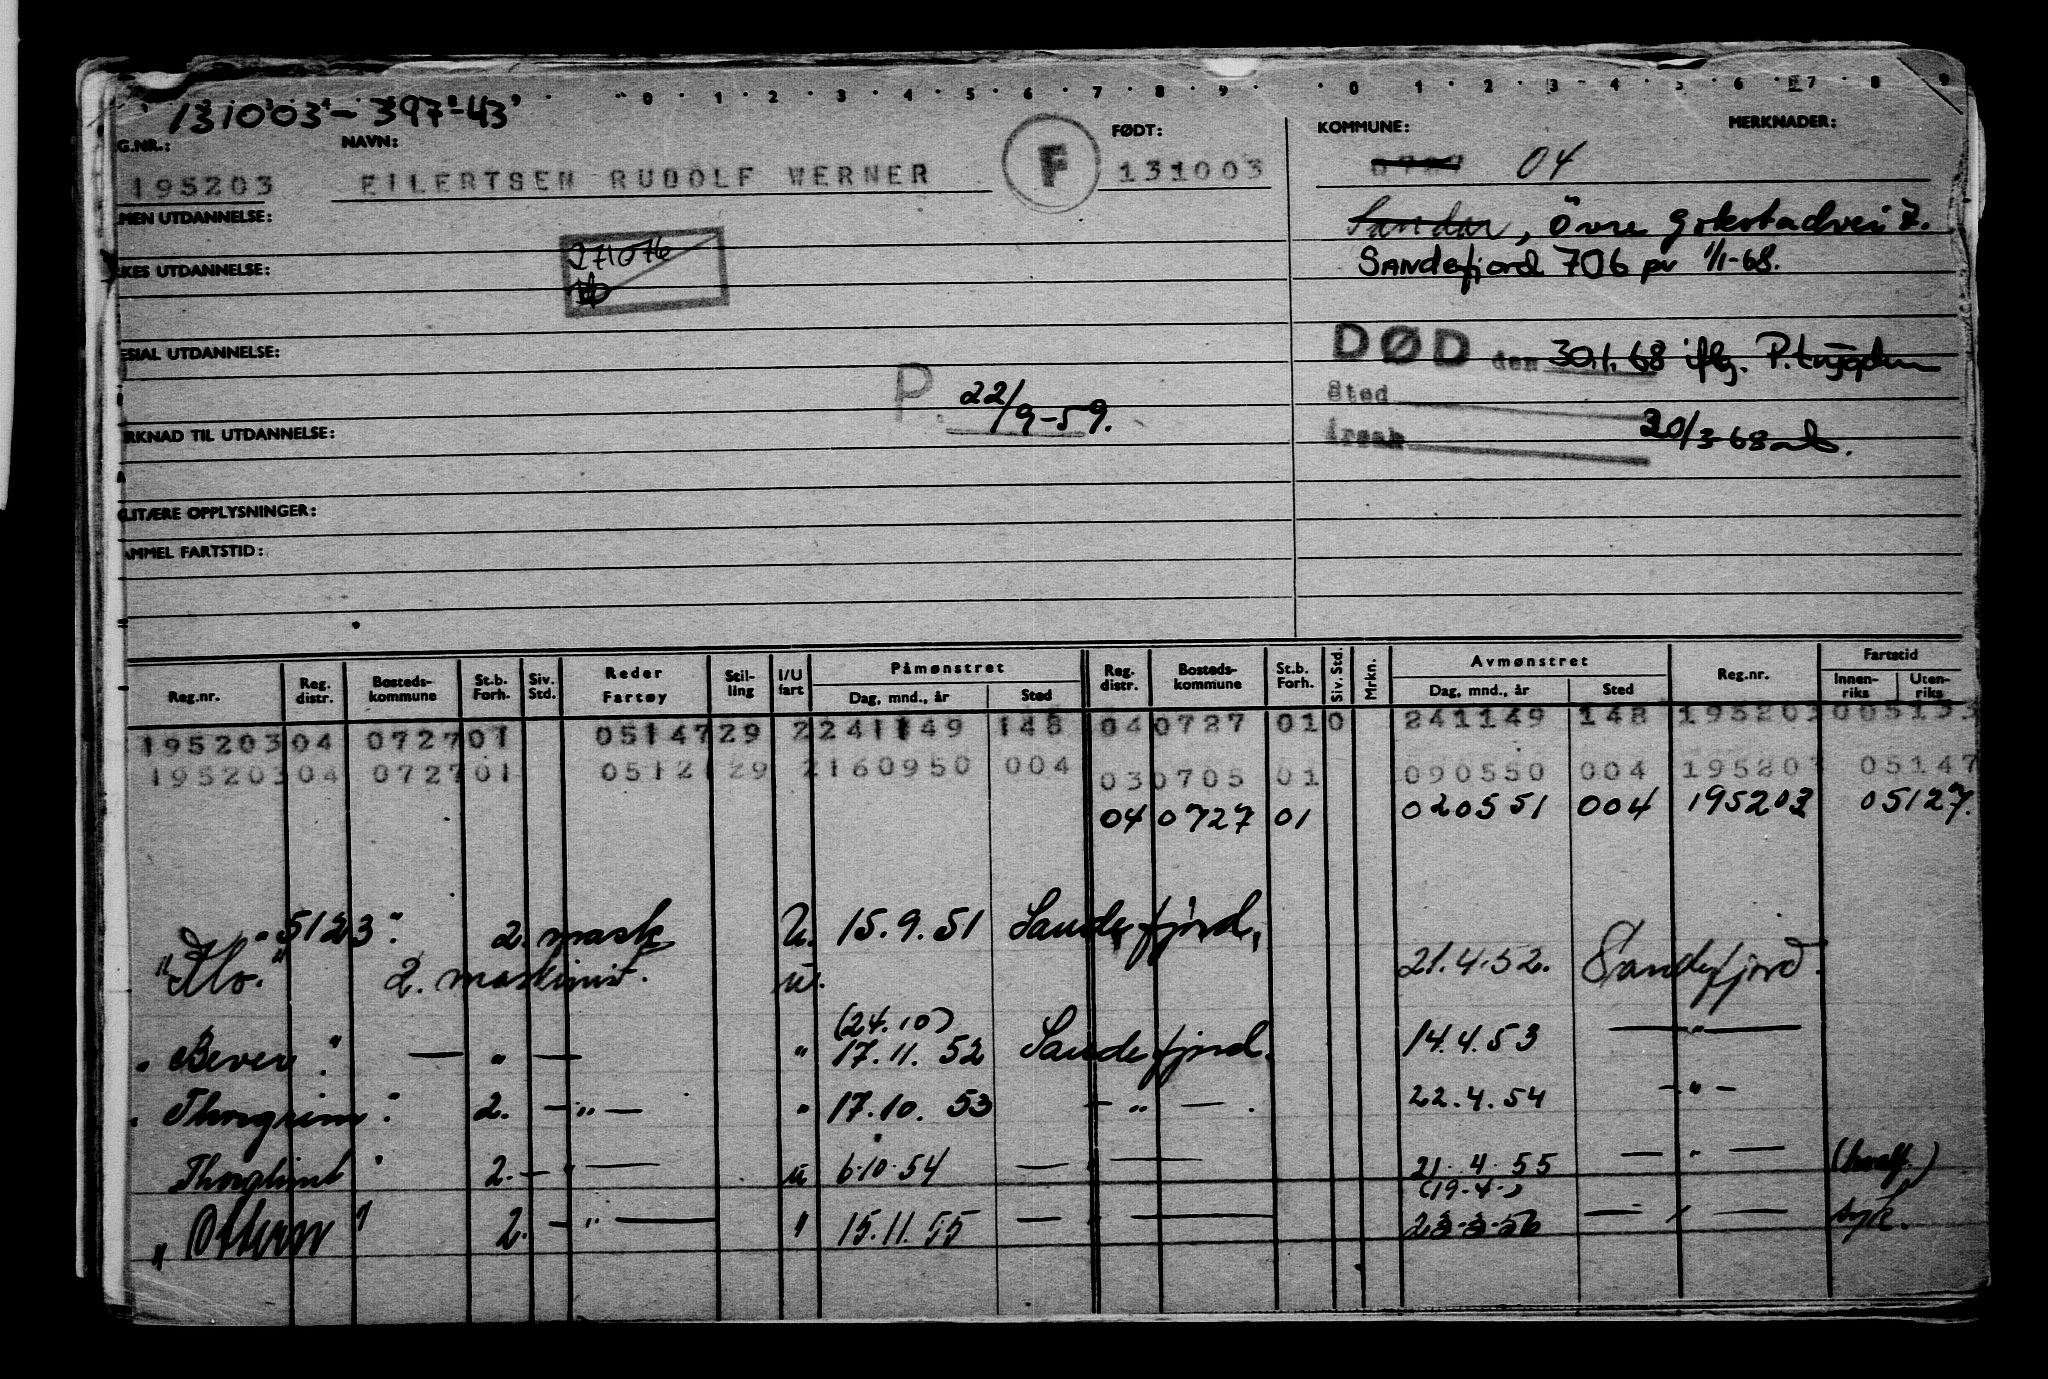 131003-39743
0 1 2 3 4 5 6 7 8 9 0 1 2 3 4 5 6 7 8 9
G.NR.: NAVN: FØDT: KOMMUNE: MERKNADER:
195203 EILERTSEN RUDOLF WERNER F 131003 04
MEN UTDANNELSE: Sandar, Övre Gokstadvei 7.
KES UTDANNELSE: 271076 SANdefjord 706 pr 1/1-68.
SIAL UTDANNELSE: DØD den 30.1.68 iflg. P.trygden
P. 22/9-59. Sted
RKNAD TIL UTDANNELSE: årsak 20/3-68
LITÆRE OPPLYSNINGER:
AMMEL FARTSTID:
Reg.nr. Reg. distr. Bosteds-kommune St.b. Forh. Siv. Std. Reder Fartøy Stil-ling I/U fart Påmønstret Dag, mnd., år Sted Reg. distr. Bosteds-kommune St.b. Forh. Siv. Std. Mrkn. Avmønstret Dag, mnd., år Sted Reg.nr. Fartstid Innen-riks Uten-riks
195203 04 0727 01 05147 29 2 241149 148 04 0727 01 0 241149 148 195203 005133
195203 04 0727 01 0512 29 2 160950 004 03 0705 01 090550 004 195203 05147
04 0727 01 020551 004 195203 05127.
"5123" 2. mask U. 15.9.51 Sandefjord,
2. maskinist. u. 21.4.52. Sandefjord.
(24.10)
"Bever" — " — " 17.11.52 Sandefjord. 14.4.53 — " —
"Thorgrim" 2. — " — " 17.10.53 — " — . 22.4.54 — " —
Thorglimt" 2. — " — u 6.10.54 — " — 21.4.55 — " — (hvalf.)
(19.4.)
"Ottern" 2. — " — " 15.11.55 — " — 23.3.56 — " — syk.